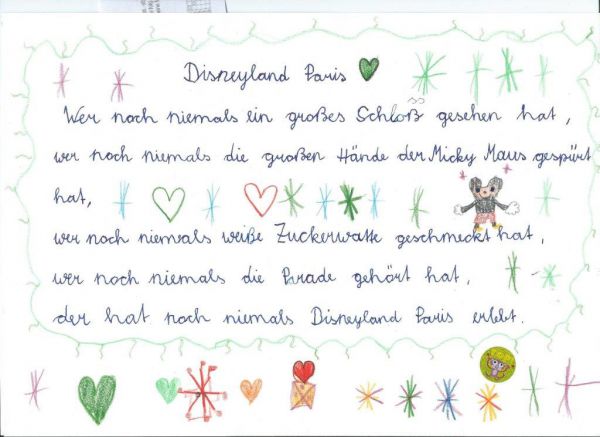 Disneyland Paris
Wer noch niemals ein großes Schloß gesehen hat,
wer noch niemals die großen Hände der Micky Maus gespürt
hat,
wer noch niemals weiße Zuckerwatte geschmeckt hat,
wer noch niemals die Parade gehört hat,
der hat noch niemals Disneyland Paris erlebt.